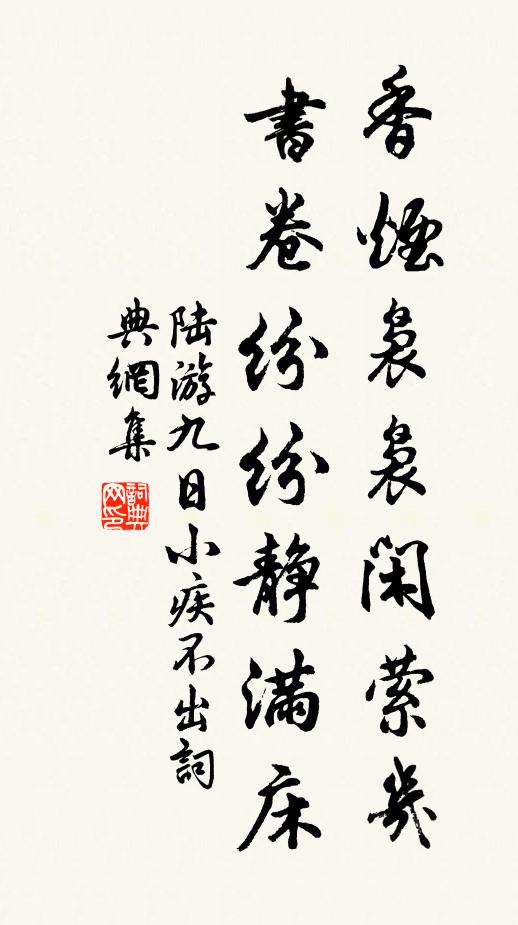 香煙裊裊閑縈几
書卷紛紛靜滿床
陸游九日小疾不出詞
典網集
詞典
网印